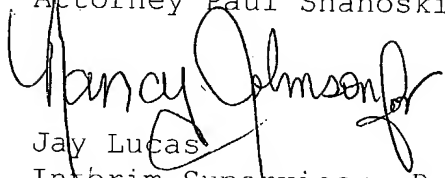 Attorney Paul Shanoski
Nancy Johnson for
Jay Lucas
Interim Supervisor